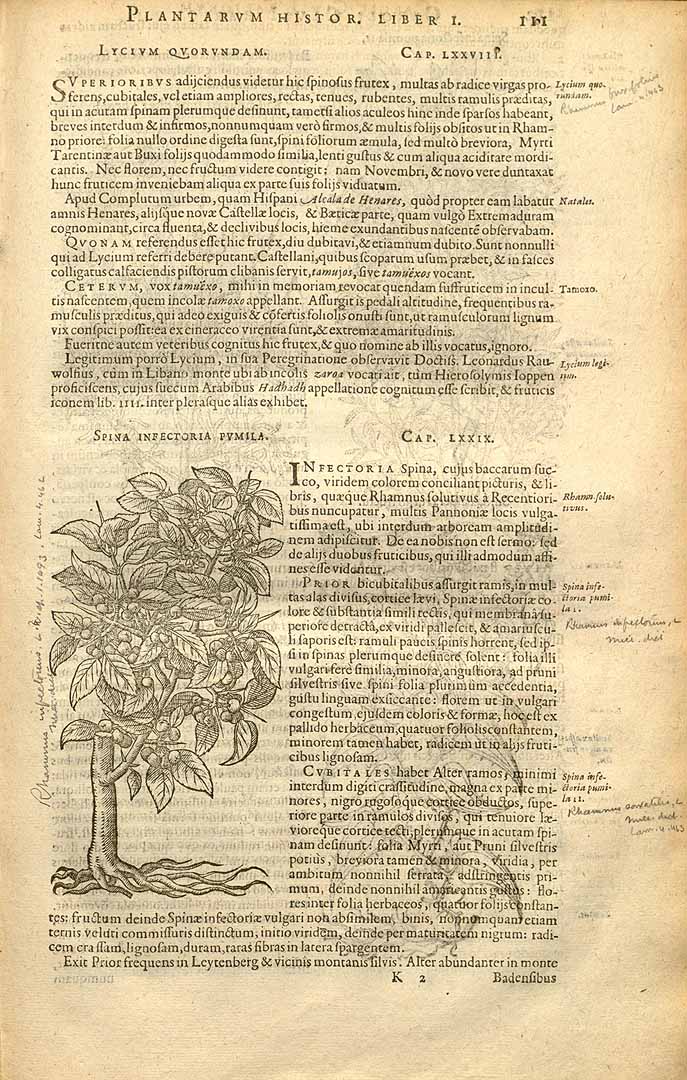 PLANTARVM HISTOR. LIBER I. 111
LYCIVM QVORVNDAM. CAP. LXXVIII.
SVPERIORIBVS adijciendus videtur hic spinosus frutex, multas ab radice virgas pro-
ferens, cubitales, vel etiam ampliores, rectas, tenues, rubentes, multis ramulis præditas,
qui in acutam spinam plerumque desinunt, tametsi alios aculeos hinc inde sparsos habeant,
breves interdum & infirmos, nonnumquam verò firmos, & multis folijs obsitos ut in Rham-
no priore: folia nullo ordine digesta sunt, spini foliorum æmula, sed multò breviora, Myrti
Tarentinæ aut Buxi folijs quodammodo similia, lenti gustus & cum aliqua aciditate mordi-
cantis. Nec florem, nec fructum videre contigit: nam Novembri, & novo vere duntaxat
hunc fruticem inveniebam aliqua ex parte suis folijs viduatum.
Lycium quo-
rundam.
Apud Complutum urbem, quam Hispani Alcala de Henares, quòd propter eam labatur
amnis Henares, alijsque novæ Castellæ locis, & Bæticæ parte, quam vulgò Extremaduram
cognominant, circa fluenta, & declivibus locis, hieme exundantibus nascentē observabam.
Natales.
QVONAM referendus esset hic frutex, diu dubitavi, & etiamnum dubito. Sunt nonnulli
qui ad Lycium referri debere putant. Castellani, quibus scoparum usum præbet, & in fasces
colligatus calfaciendis pistorum clibanis servit, tamujos, sive tamuéxos vocant.
CETERVM, vox tamuéxo, mihi in memoriam revocat quendam suffruticem in incul-
tis nascentem, quem incolæ tamoxo appellant. Assurgit is pedali altitudine, frequentibus ra-
musculis præditus, qui adeo exiguis & cōfertis foliolis onusti sunt, ut ramusculorum lignum
vix conspici possit: ea ex cineraceo virentia sunt, & extremæ amaritudinis.
Tamoxo.
Fueritne autem veteribus cognitus hic frutex, & quo nomine ab illis vocatus, ignoro.
Legitimum porrò Lycium, in sua Peregrinatione observavit Doctiss. Leonardus Rau-
wolfius, cùm in Libano monte ubi ab incolis zaroa vocari ait, tùm Hierosolymis Ioppen
proficiscens, cujus succum Arabibus Hadhadh appellatione cognitum esse scribit, & fruticis
iconem lib. IIII. inter plerasque alias exhibet.
Lycium legi-
tim.
SPINA INFECTORIA PVMILA. CAP. LXXIX.
INFECTORIA Spina, cujus baccarum suc-
co, viridem colorem conciliant picturis, & li-
bris, quæque Rhamnus solutivus à Recentiori-
bus nuncupatur, multis Pannoniæ locis vulga-
tissima est, ubi interdum arboream amplitudi-
nem adipiscitur. De ea nobis non est sermo: sed
de alijs duobus fruticibus, qui illi admodum affi-
nes esse videntur.
Rhamn. solu-
tivus.
PRIOR bicubitalibus assurgit ramis, in mul-
tas alas divisus, cortice lævi, Spinæ infectoriæ co-
lore & substantia simili tectis, qui membranâ su-
periore detractâ, ex viridi pallescit, & amariuscu-
li saporis est: ramuli paucis spinis horrent, sed ip-
si in spinas plerumque desinere solent: folia illi
vulgari ferè similia, minora, angustiora, ad pruni
silvestris sive spini folia plurimùm accedentia,
gustu linguam exsiccante: florem ut in vulgari
congestum, ejusdem coloris & formæ, hoc est ex
pallido herbaceum, quatuor foliolis constantem,
minorem tamen habet, radicem ut in alijs fruti-
cibus lignosam.
Spina infe-
ctoria pumi-
la I.
Rhamnus infectorius, L
CVBITALES habet Alter ramos, minimi
interdum digiti crassitudine, magna ex parte mi-
nores, nigro rugosoque cortice obductos, supe-
riore parte in ramulos divisos, qui tenuiore læ-
vioreque cortice tecti, plerumque in acutam spi-
nam desinunt: folia Myrti, aut Pruni silvestris
potius, breviora tamen & minora, viridia, per
ambitum nonnihil serrata, adstringentis pri-
mum, deinde nonnihil amaricantis gustus: flo-
res inter folia herbaceos, quatuor folijs constan-
tes: fructum deinde Spinæ infectoriæ vulgari non absimilem, binis, nonnumquam etiam
ternis veluti commissuris distinctum, initio viridem, deinde per maturitatem nigrum: radi-
cem crassam, lignosam, duram, raras fibras in latera spargentem.
Spina infe-
ctoria pumi-
la II.
Rhamnus saxatilis, L
Lam. 4. 463
Exit Prior frequens in Leytenberg & vicinis montanis silvis. Alter abundanter in monte
K 2 Badensibus